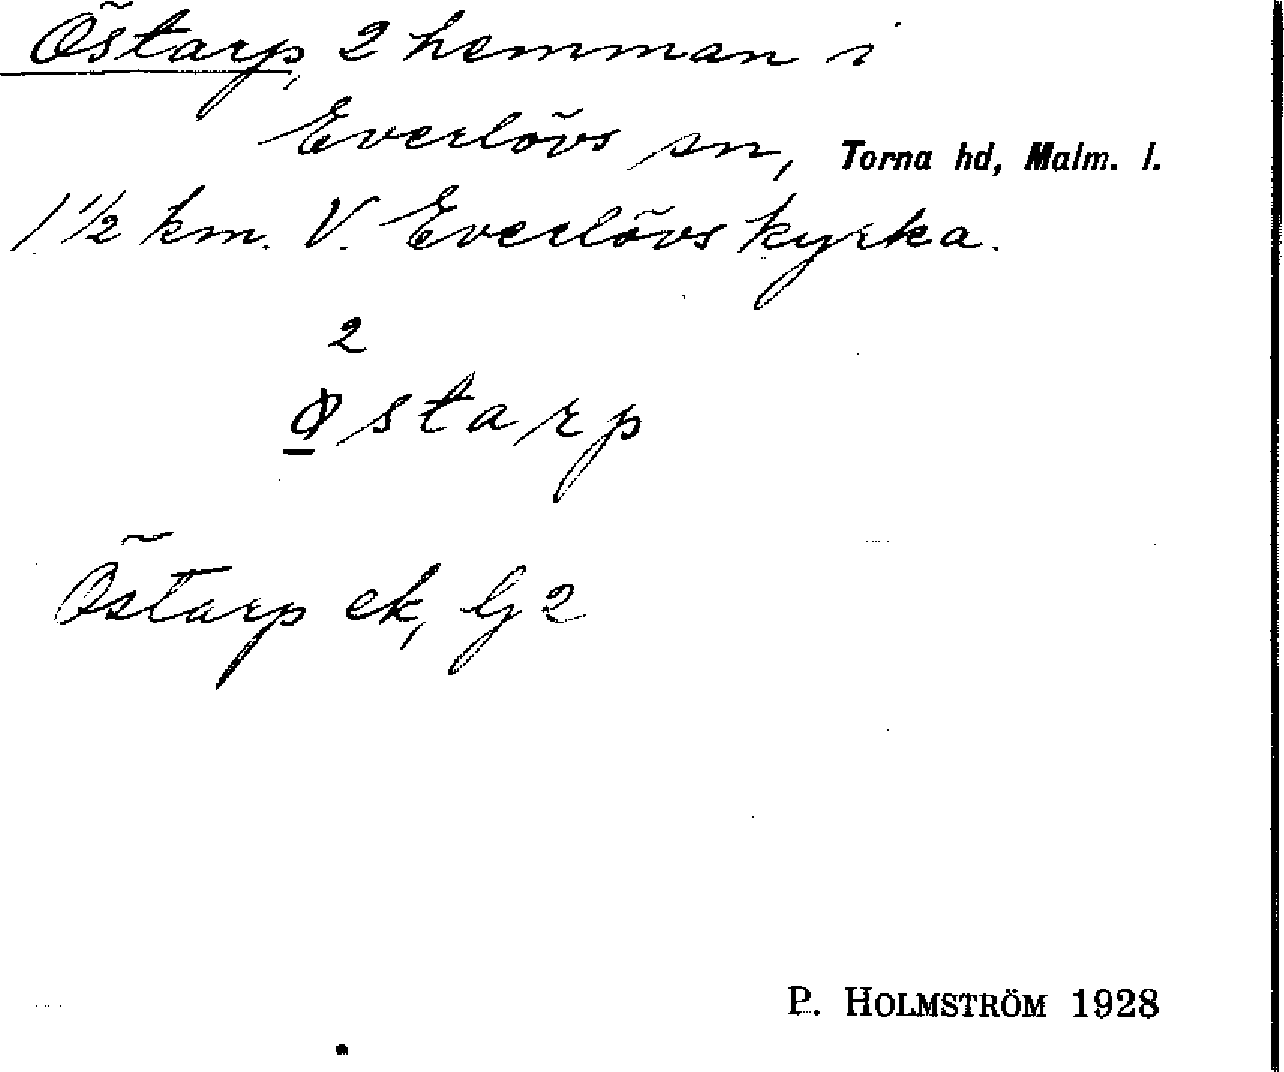 Östarp, 2 hemman i
Everlövs sn, Torna hd, Malm. l.
1 1/2 km. V. Everlövs kyrka.
2
østarp
Östarp ek, lj 2
P. HOLMSTRÖM 1928